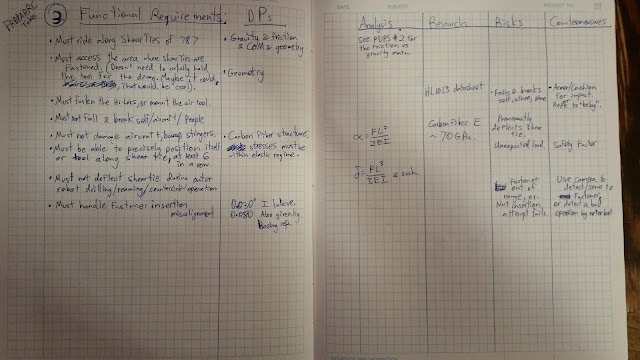 ③ Functional Requirements
DPs
• Must ride along Shearties of 787
• Gravity & Friction
& COM & geometry
• Must access the area where shearties are
fastened. (Doesn't need to hold
the tool for the demo. Maybe it could,
that would be cool).
• Geometry
• Must fasten the Hi-loks, or mount the air tool.
• Must not Fall & break self/aircraft/people
• Must not damage aircraft, bump stringers.
• Carbon Fiber structure,
stresses must be
within elastic regime.
• Must be able to precisely position itself
or tool along shear tie, at least 6
in a row
• Must not deflect sheartie during outer
robot drilling/reaming/countersink/operation
• Must handle fastener insertion
misalignment
0.030" I believe.
Also given by
Boeing rep.
DATE
Analysis
Research
Risks
Countermeasures
see PUPS #2 for
the friction vs
gravity math.
HL10 datasheet
• Falls & breaks
self, others, plane
• Armor/cushion
for impact.
Rope to "belay".
α = FL²/2EI
Carbon Fiber E
~ 70 GPa.
Permanently
deflects shear
tie.
Unexpected load
Safety Factor
δ = FL³/3EI & such.
Fastener
out of
range, or
Nut insertion
attempt fails.
Use camera to
detect/servo to
fastener,
or detect a bad
operation by outer bot